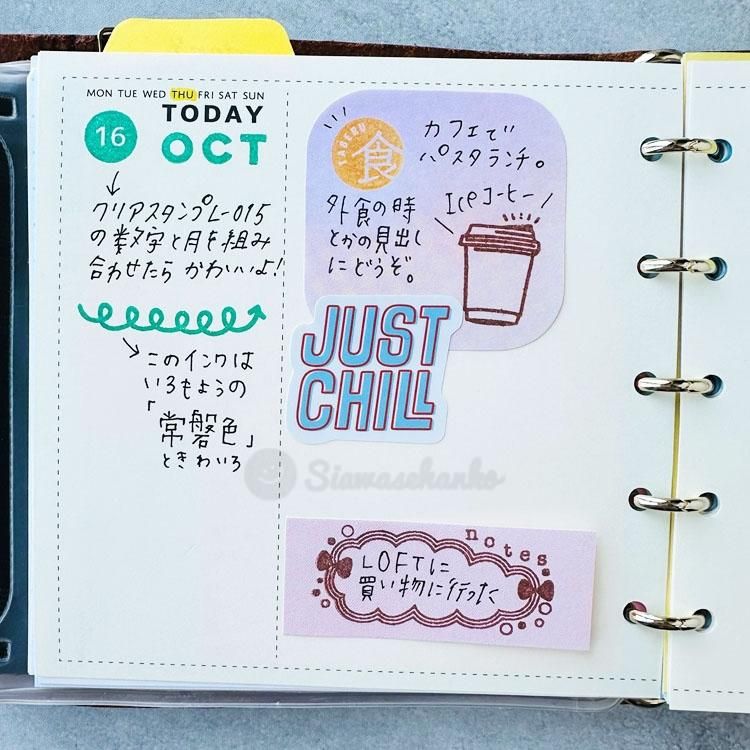 MON TUE WED THU FRI SAT SUN
TODAY
16 OCT
クリアスタンプL-015
の数字と月を組み
合わせたら かわいいよ!
このインクは
いろもようの
「常磐色」
ときわいろ
TABERU
食
カフェで
パスタランチ。
外食の時
とかの見出し
にどうぞ。
Iceコーヒー
JUST
CHILL
Siawasehanko
notes
LOFTに
買い物に行った